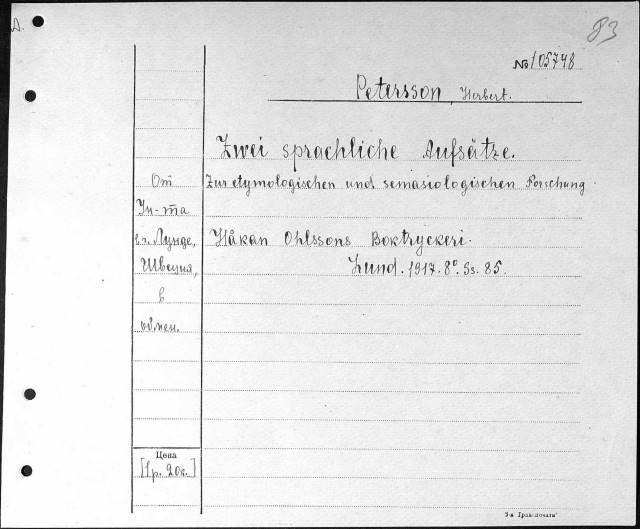 A.
83
№ 105748
Petersson, Herbert.
Zwei sprachliche Aufsätze.
От Zur etymologischen und semasiologischen Forschung.
Ун-та
в г. Лунде, Håkan Ohlssons Boktryckeri.
Швеция, Lund. 1917. 8°. Ss. 85.
в
обмен.
Цена
[1р. 20к.]